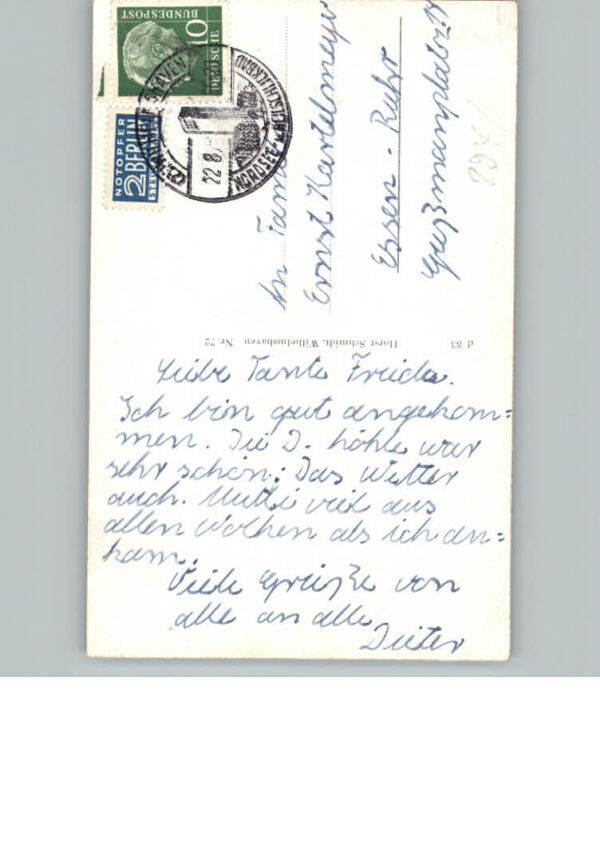 10
DEUTSCHE
BUNDESPOST
NOTOPFER
2 BERLIN
STEUERMARKE
22.8.
NORDSEE-
An Fam.
Ernst
Essen - Ruhr
d 83 Horst Schmidt, Wilhelmshaven Nr. 72
Liebe Tante Frieda.
Ich bin gut angekom=
men. Die D. höhle war
sehr schön; Das Wetter
auch. Mutti viel aus
allen Wolken als ich an=
kam.
Viele Grüße von
alle an alle
Dieter